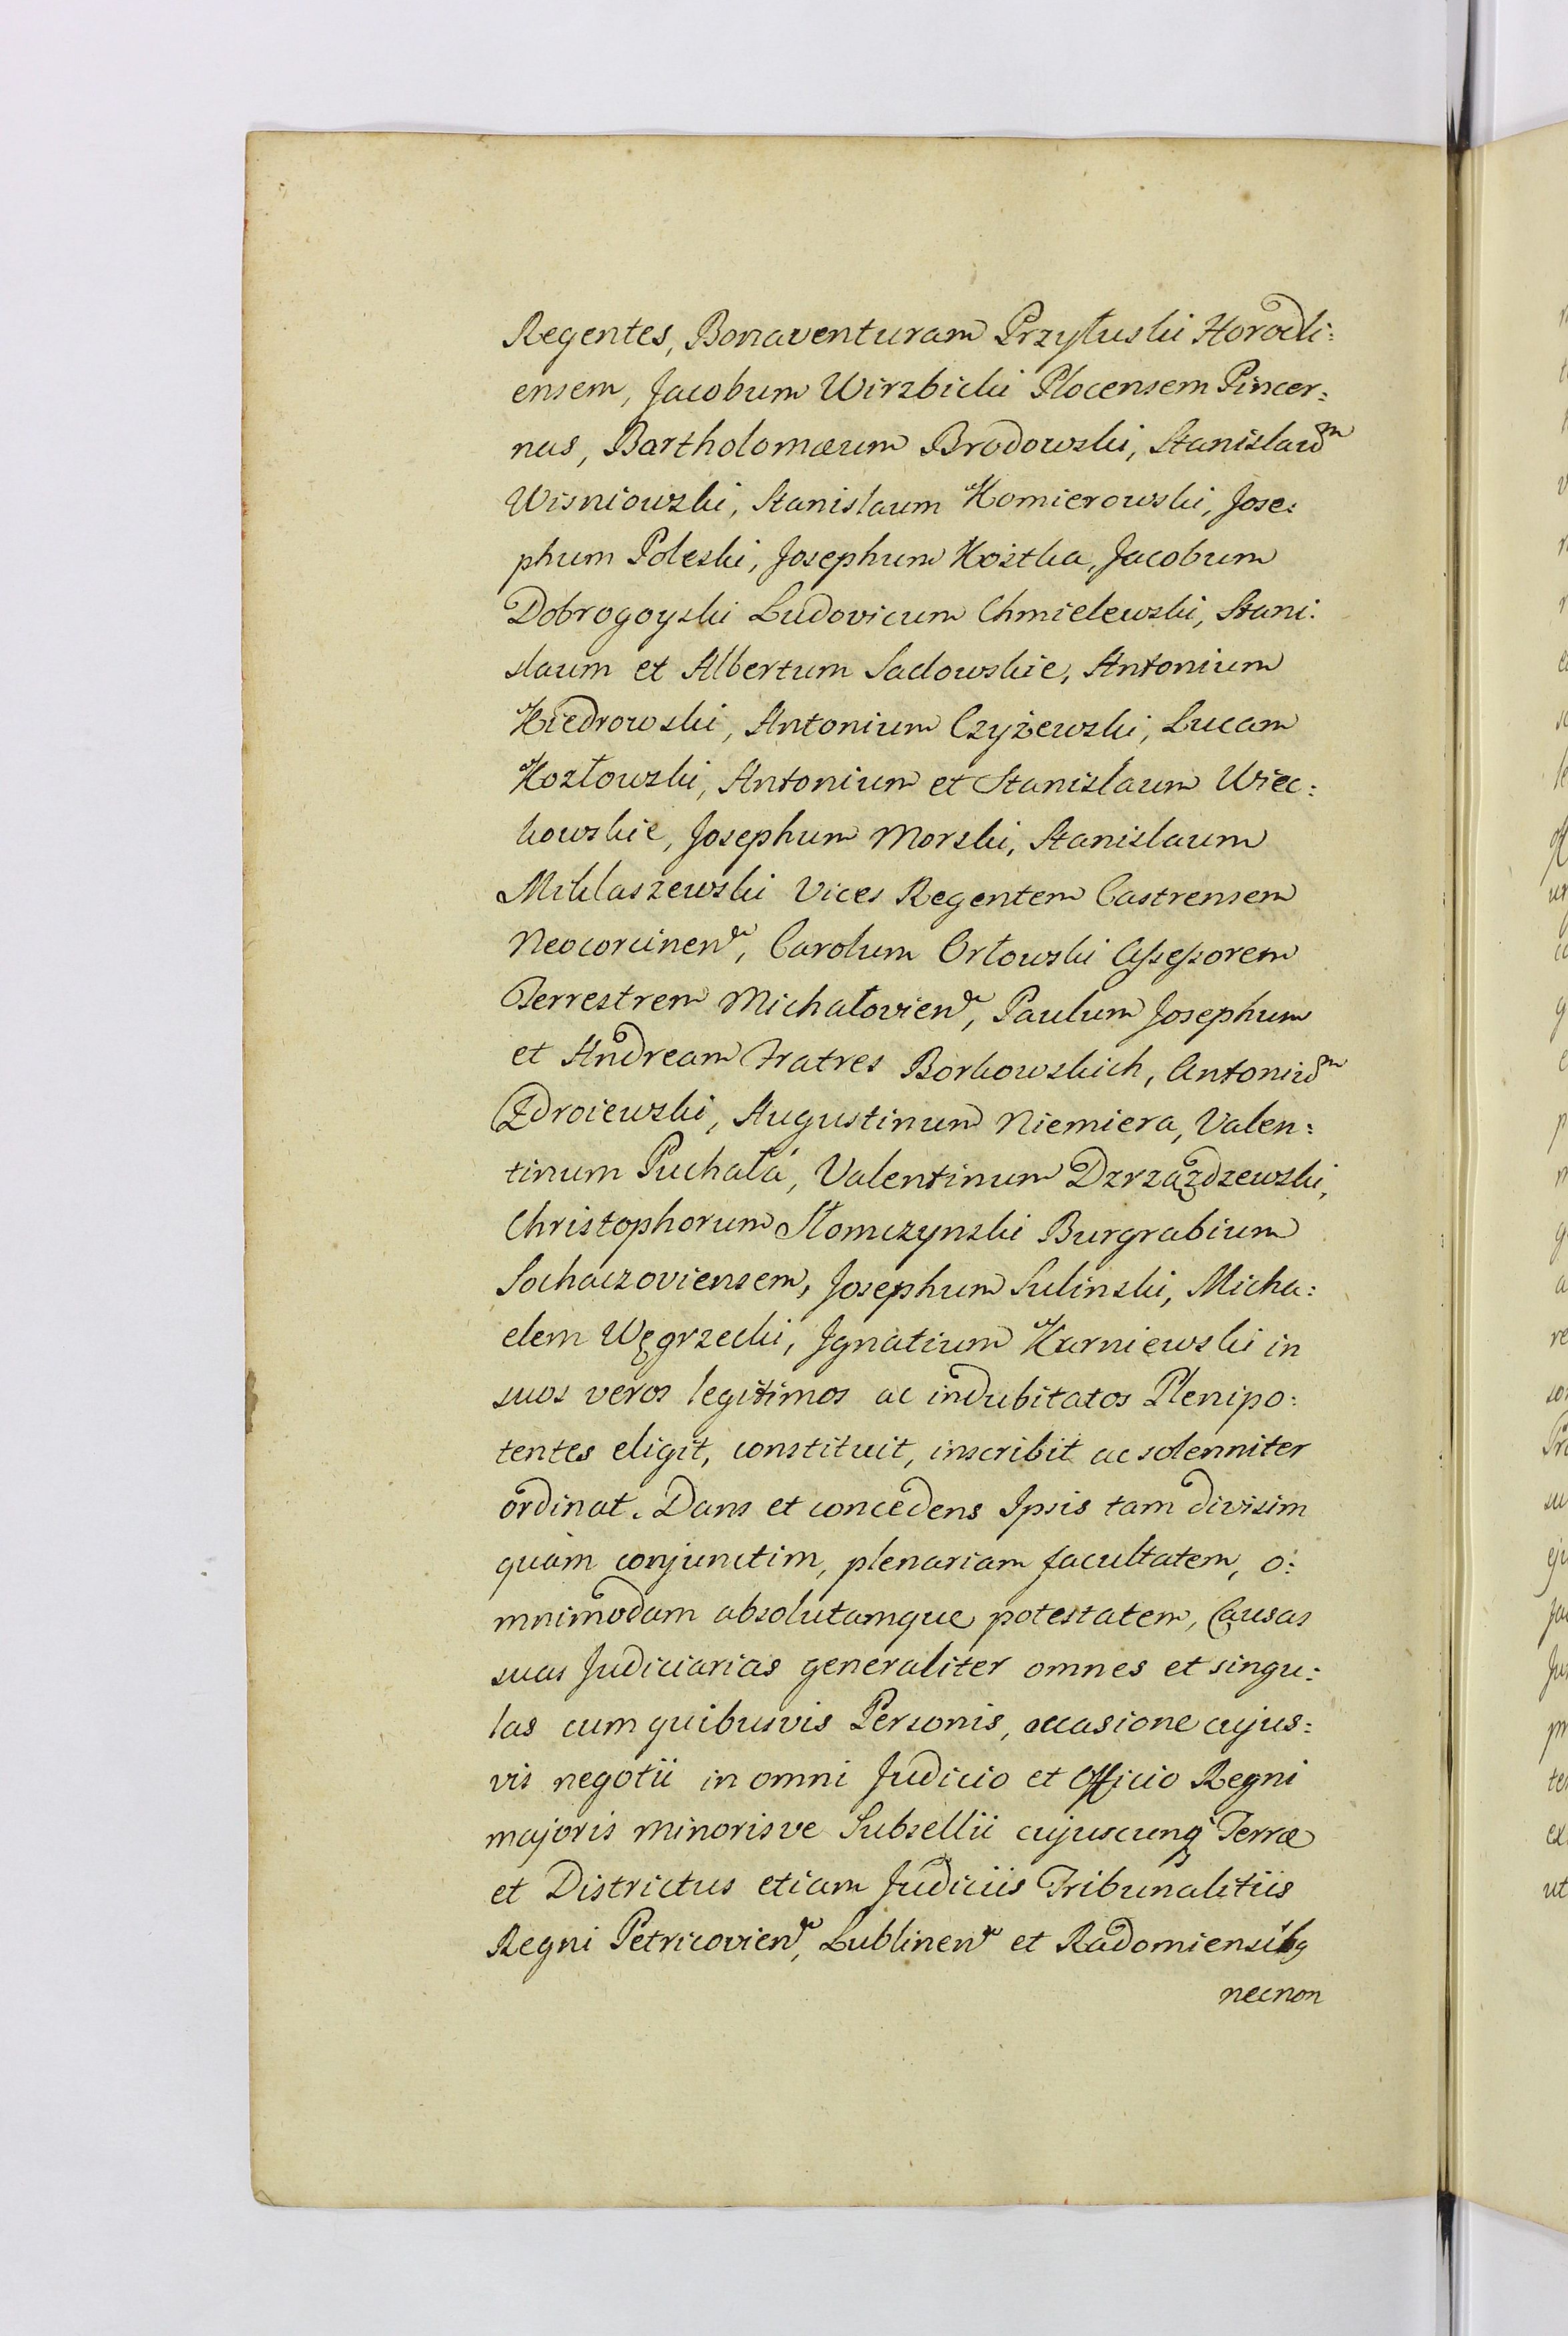 Regentes, Bonaventuram Przyłuski Horodli:
ensem, Jacobum Wirzbicki Plocensem Pincer:
nas, Bartholomæum Brodowski, Stanislaum
Wisniowski, Stanislaum Komierowski, Jose:
phum Poleski, Josephum Kostka, Jacobum
Dobrogoyski Ludovicum Chmielewski, Stani:
slaum et Albertum Sadowskie, Antonium
Kiedrowski, Antonium Czyżewski, Lucam
Kozłowski, Antonium et Stanislaum Wiec:
kowskie, Josephum Morski, Stanislaum
Miklaszewski Vices Regentem Castrensem
Neocorcinen, Carolum Orłowski Assessorem
Terrestrem Michałovien, Paulum Josephum
et Andream Fratres Borkowskich, Antonium
Zdroiewski, Augustinum Niemiera, Valen:
tinum Puchała, Valentinum Dzrzązdzewski,
Christophorum Słomczynski Burgrabium
Sochaczoviensem, Josephum Sulinski, Micha:
elem Węgrzecki, Ignatium Karniewski in
suos veros legitimos ac indubitatos Plenipo:
tentes eligit, constituit, inscribit ac solenniter
ordinat. Dans et concedens Ipsis tam divisim
quàm conjunctim, plenariam facultatem, o:
mnimodam absolutamque potestatem, Causas
suas Judiciarias generaliter omnes et singu:
las cum quibusvis Personis, occasione cujus:
vis negotii in omni Judicio et Officio Regni
majoris minorisve Subsellii cujuscunq Terræ
et Districtus etiam Judiciis Tribunalitiis
Regni Petricovien, Lublinen et Radomiensibq
necnon